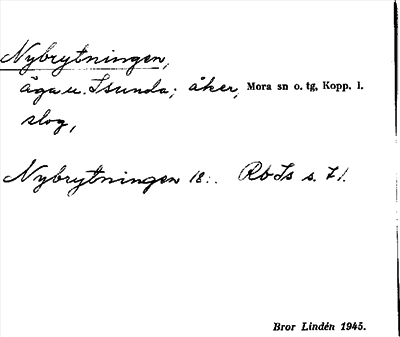 Nybrytningen,
äga u. Isunda; åker, Mora sn o. tg, Kopp. l.
slog,
Nybrytningen 18:. Rb Is s. 71.
Bror Lindén 1945.